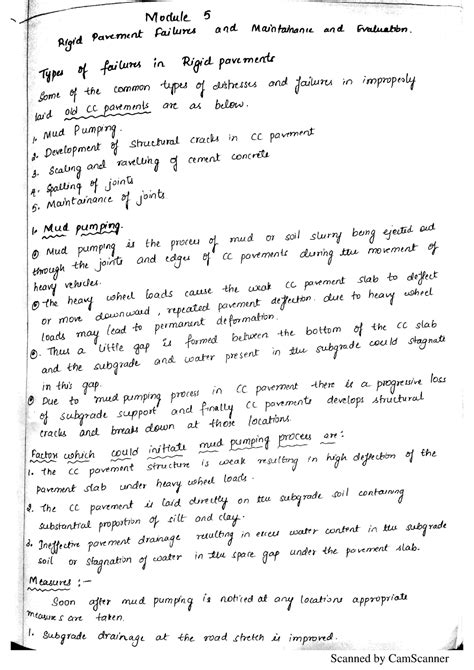 Module 5
Rigid Pavement Failures and Maintainance and Evaluation.
Types of failures in Rigid pavements
Some of the common types of distresses and failures in improperly
laid old CC pavements are as below.
1. Mud Pumping.
2. Development of structural cracks in CC pavement
3. Scaling and ravelling of cement concrete
4. Spalling of joints
5. Maintainance of joints.
1. Mud pumping.
Mud pumping is the process of mud or soil slurry being ejected out
through the joints and edges of CC pavements during the movement of
heavy vehicles.
The heavy wheel loads cause the weak CC pavement slab to deflect
or move downward, repeated pavement deflection due to heavy wheel
loads may lead to permanent deformation.
Thus a little gap is formed between the bottom of the CC slab
and the subgrade and water present in the subgrade could stagnate
in this gap.
Due to mud pumping process in CC pavement there is a progressive loss
of subgrade support and finally CC pavements develops structural
cracks and breaks down at those locations.
Factors which could initiate mud pumping process are:
1. The CC pavement structure is weak resulting in high deflection of the
pavement slab under heavy wheel loads.
2. The CC pavement is laid directly on the subgrade soil containing
substantial proportion of silt and clay.
3. Ineffective pavement drainage resulting in excess water content in the subgrade
soil or stagnation of water in the spare gap under the pavement slab.
Measures :-
Soon after mud pumping is noticed at any locations appropriate
measures are taken.
1. Subgrade drainage at the road stretch is improved.
Scanned by CamScanner